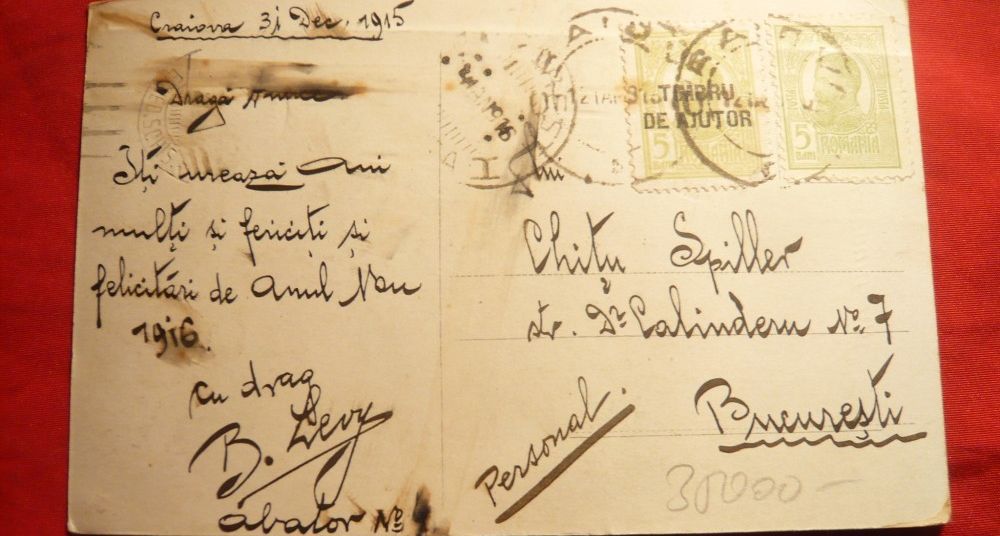 Craiova 31 Dec. 1915
Dragă
Iți urează Ani
mulți și fericiți și
felicitări de Anul Nou
1916.
cu drag
B. Levy
abator No
TIMBRU
DE AJUTOR
5 BANI
ROMANIA
5 BANI
ROMANIA
Lui
Chițu Spiller
str. Dr Calinderu No 7
București
Personal.